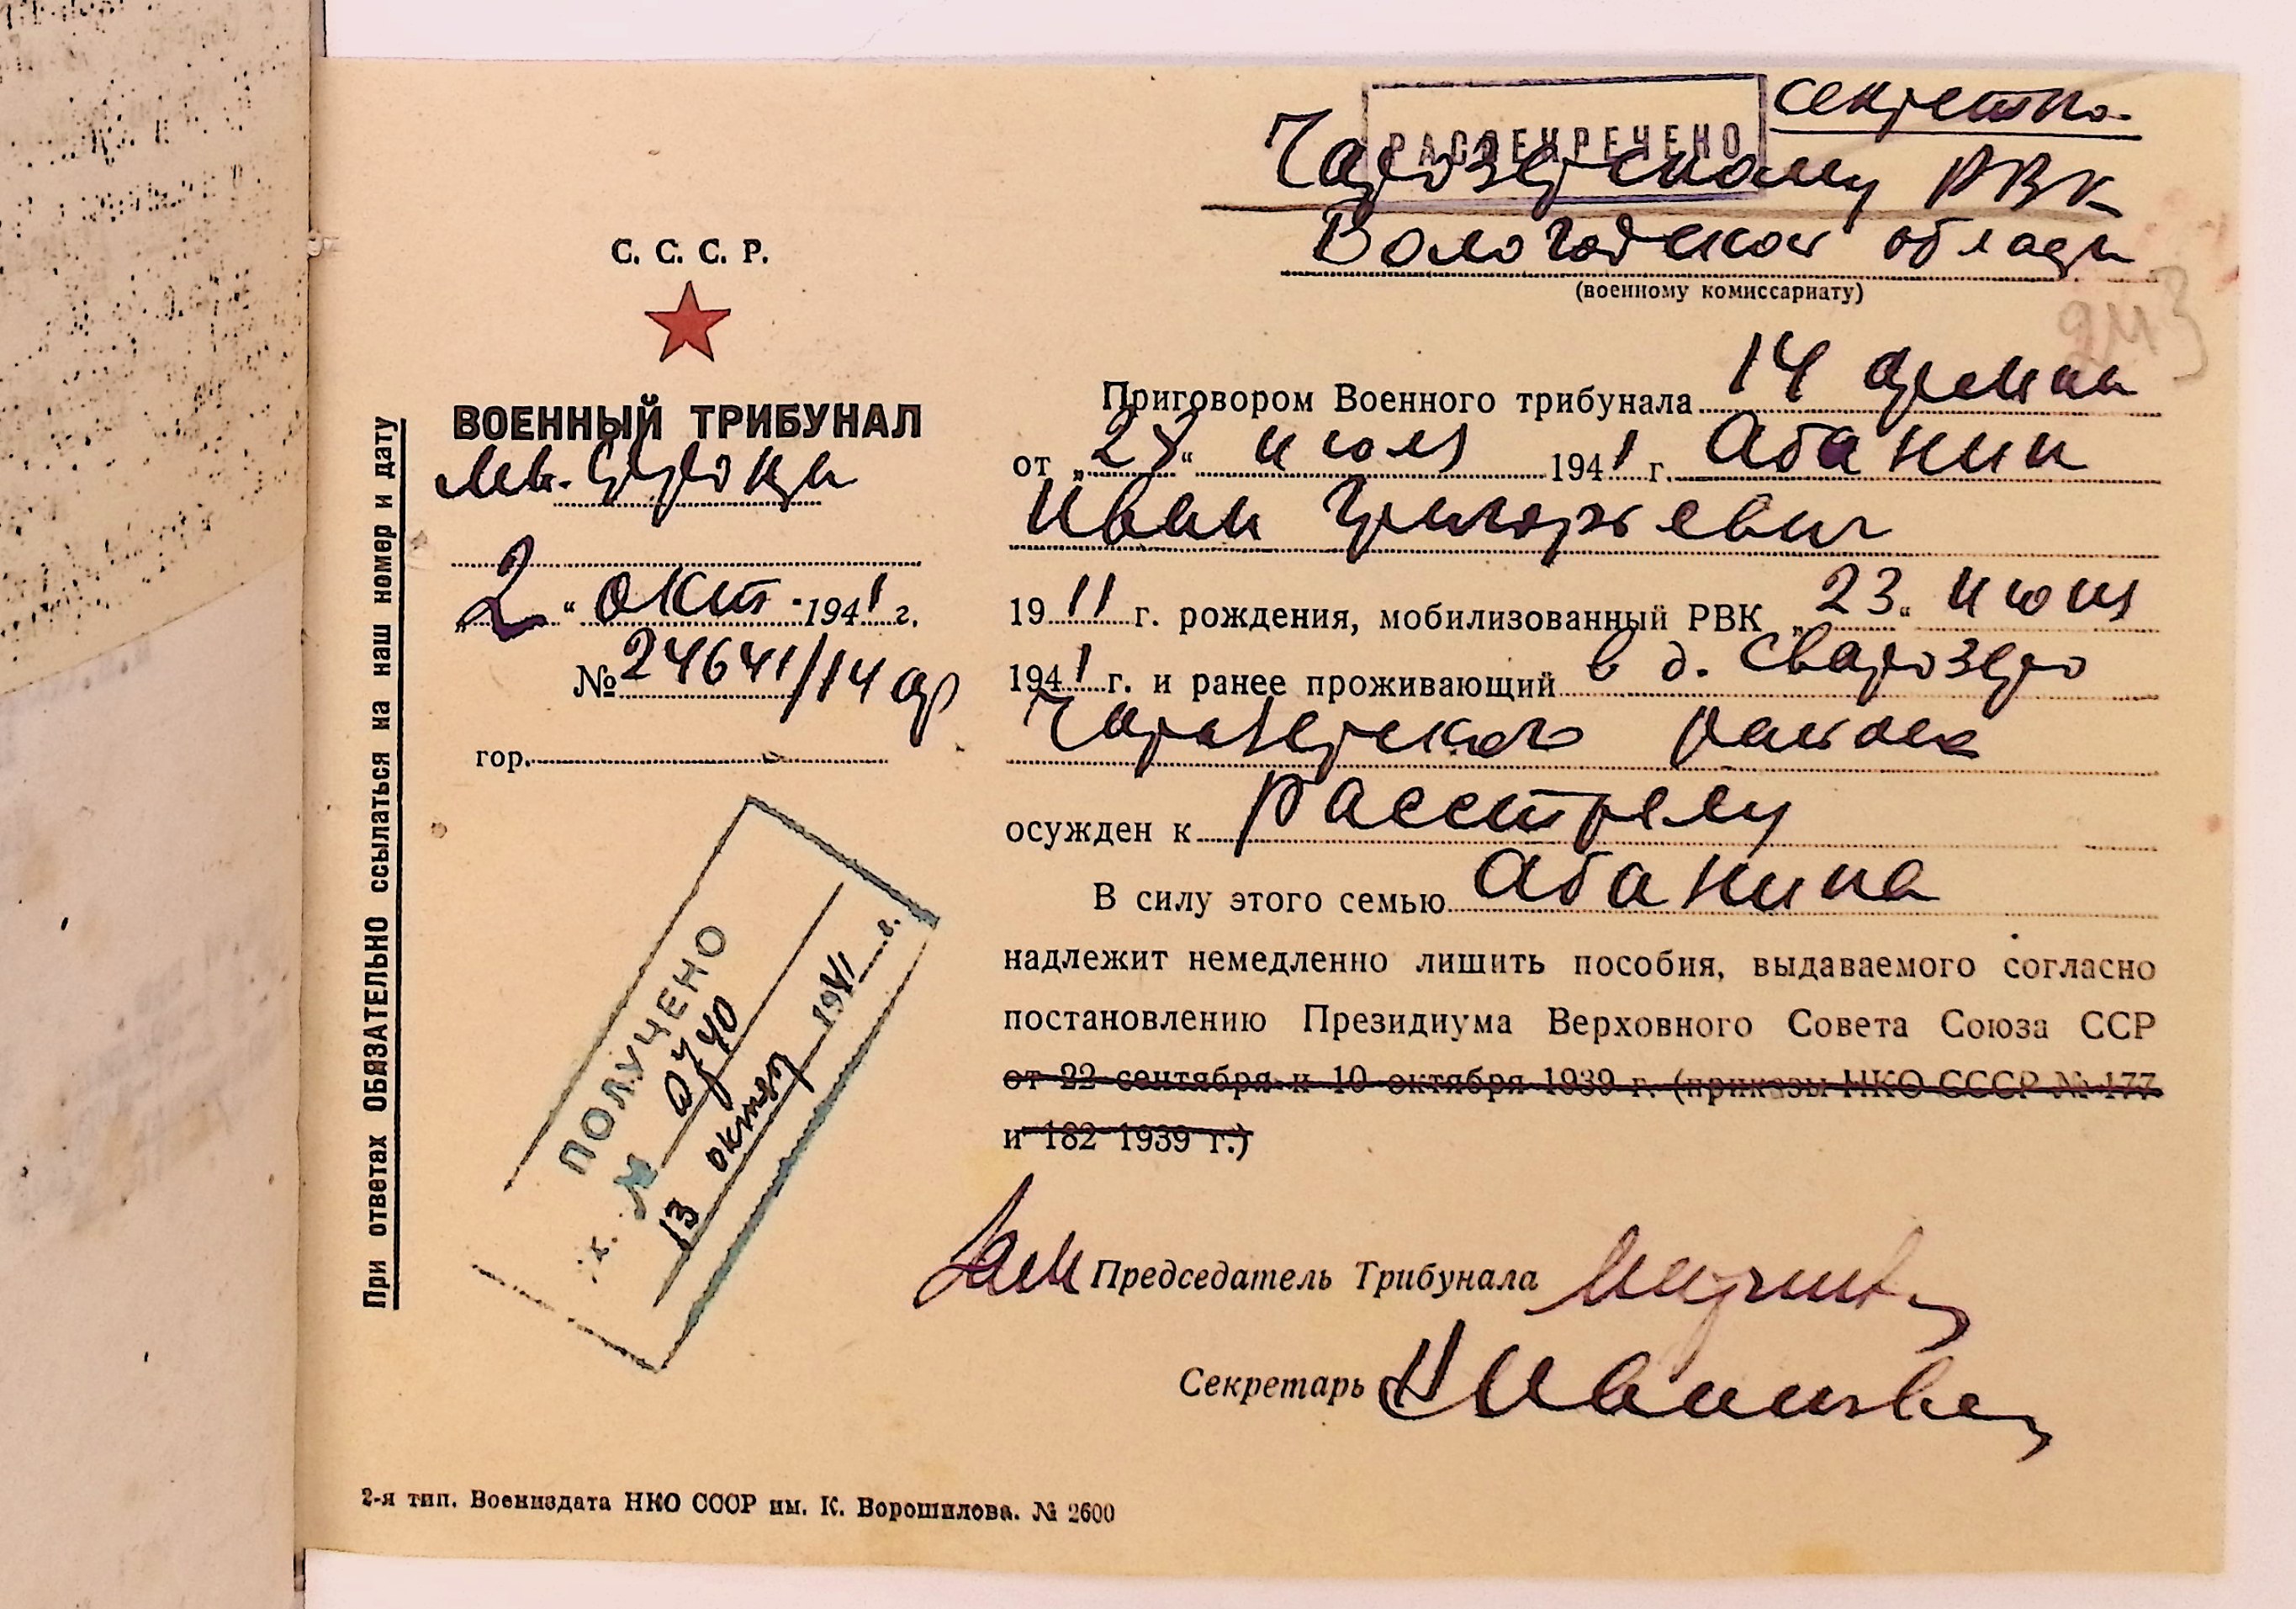 секретно.
РАССЕКРЕЧЕНО
Чарозерскому РВК
Вологодской области
(военному комиссариату)
243
С. С. С. Р.
ВОЕННЫЙ ТРИБУНАЛ
„2“ окт. 1941 г.
№ 24641/14 ар
гор.
При ответах ОБЯЗАТЕЛЬНО ссылаться на наш номер и дату
ПОЛУЧЕНО
№ 0740
13 октяр 1941 г.
Приговором Военного трибунала 14 армии
от „24“ июля 1941 г. Абанин
Иван Григорьевич
1911 г. рождения, мобилизованный РВК „23“ июня
1941 г. и ранее проживающий в д. Сварозеро
Чарозерского района
осужден к расстрелу
В силу этого семью Абанина
надлежит немедленно лишить пособия, выдаваемого согласно
постановлению Президиума Верховного Совета Союза ССР
от 22 сентября и 10 октября 1939 г. (приказы НКО СССР № 177
и 182 1939 г.)
Зам Председатель Трибунала
Секретарь
2-я тип. Воениздата НКО СССР им. К. Ворошилова. № 2600